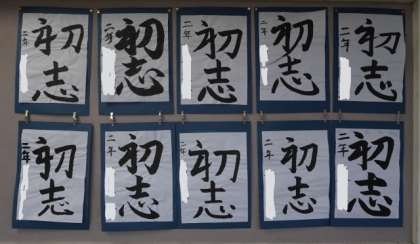 初志
二年
初志
二年
初志
二年
初志
二年
初志
二年
初志
二年
初志
二年
初志
二年
初志
二年
初志
二年